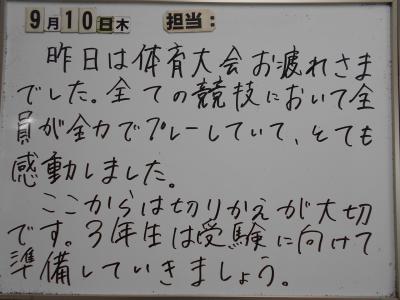 9月10日木 担当:
昨日は体育大会お疲れさま
でした。全ての競技において全
員が全力でプレーしていて、とても
感動しました。
ここからは切りかえが大切
です。3年生は受験に向けて
準備していきましょう。